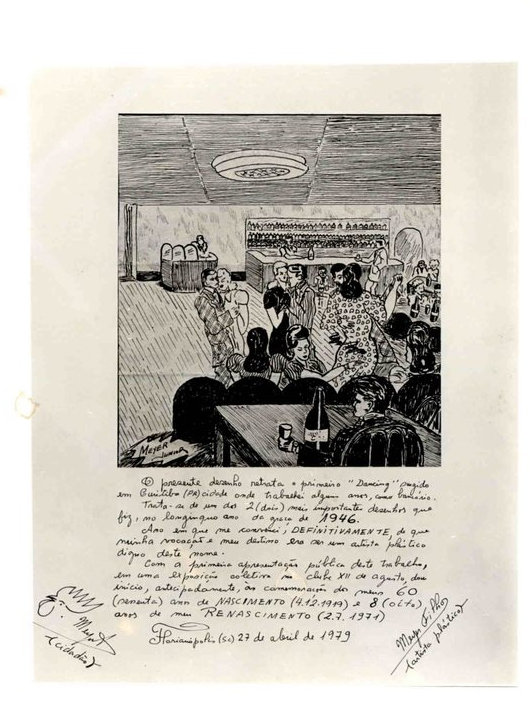 MEYER
JUNIOR
O presente desenho retrata o primeiro "Dancing" surgido
em Curitiba (PR) cidade onde trabalhei alguns anos, como bancário.
Trata-se de um dos 2 (dois) mais importantes desenhos que
fiz, no longínquo ano da graça de 1946.
Ano em que me convenci, DEFINITIVAMENTE, de que
minha vocação e meu destino era ser um artista plástico
digno deste nome.
Com a primeira apresentação pública deste trabalho,
em uma exposição coletiva no clube XII de agosto, dou
início, antecipadamente, às comemorações dos meus 60
(sessenta) anos de NASCIMENTO (4.12.1919) e 8 (oito)
anos de meu RENASCIMENTO (2.7.1971)
Florianópolis (SC) 27 de abril de 1979
(cidadão)
Meyer Filho
(artista plástico)